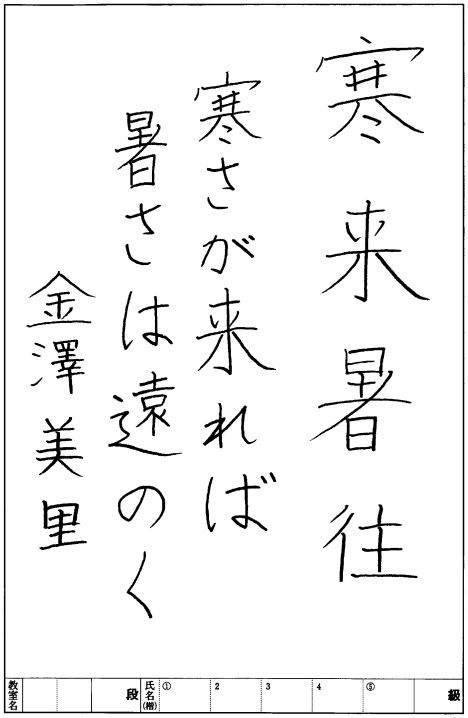 寒来暑往
寒さが来れば
暑さは遠のく
金澤美里
級
⑤
4
3
2
①
氏名(楷)
段
教室名